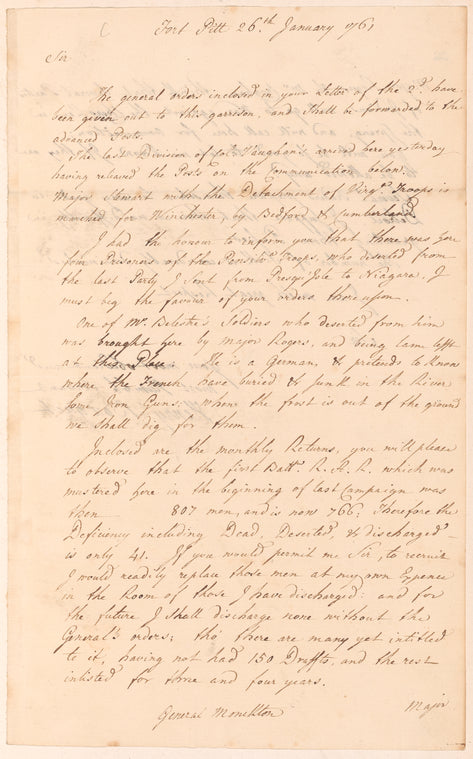 Fort Pitt 26th January 1761
Sir
The general orders inclosed in your Letter of the 2d have
been given out to this garrison, and shall be forwarded to the
advanced Posts.
The last Division of Col. Vaughan's arrived here yesterday
having relieved the Posts on the Communication below.
Major Stewart with the Detachment of Virga Troops is
marched for Winchester, by Bedford & Cumberland
I had the honour to inform you that there was here
four Prisoners of the Pensila Troops, who deserted from
the last Party I sent from Presqu'Isle to Niagara, I
must beg the favour of your orders thereupon.
One of Mr. Belestre's Soldiers who deserted from him
was brought here by major Rogers, and being lame lefft
at this Place. He is a German, & pretends to know
where the French have buried & sunk in the River
some Iron Guns: when the frost is out of the ground
we shall dig for them.
Inclosed are the monthly Returns, you will please
to observe that the first Batt. R. A. R. which was
mustered here in the beginning of last Campaign was
then 807 men, and is now 766, Therefore the
Deficiency including Dead, Deserted, & discharged
is only 41. If you would permit me Sir, to recruit
I would readily replace those men at my own Expence
in the Room of those I have discharged: and for
the future I shall discharge none without the
General's orders; tho' there are many yet intitled
to it, having not had 150 Draffts, and the rest
inlisted for three and four years.
General Monckton
Major